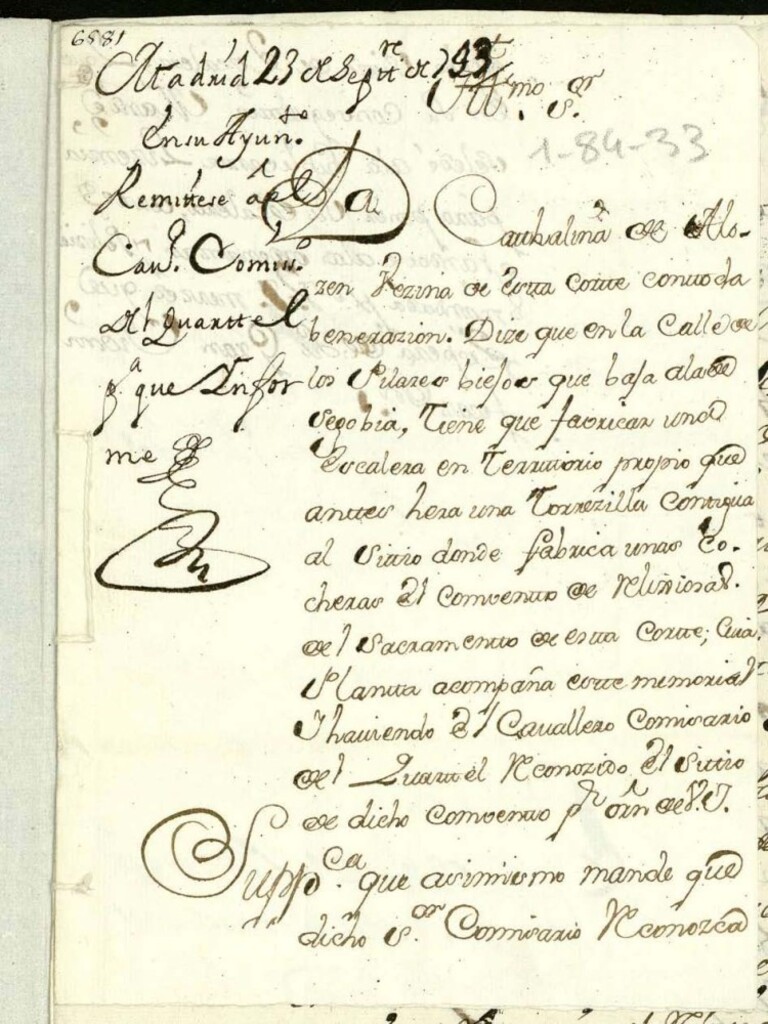 6581
Madrid 23 de Septre de 733
Illmo Sor
1-84-33
En su Ayunto
Remitese a el
Cavo Comiso
del Quarttel
pa que Infor
me
Da Cathalina de Alo-
zen Vezina de estta cortte con toda
benerazion. Dize que en la Calle de
los Pilares biejos que baja ala de
Segobia, tiene que fabricar una
Escalera en Territtorio propio que
anttes hera una Torrezilla contigua
al Sittio donde fabrica unas Co-
cheras el Comventto de Relixiosas
del Sacramentto de estta Cortte; Cuia
Plantta acompaña este memorial
Y haviendo el Cavallero Comisario
del Quarttel Reconozido el Sittio
de dicho Comventto pr orn de V.I.
Suppca que asimismo mande que
dicho Sor Comisario Reconozca